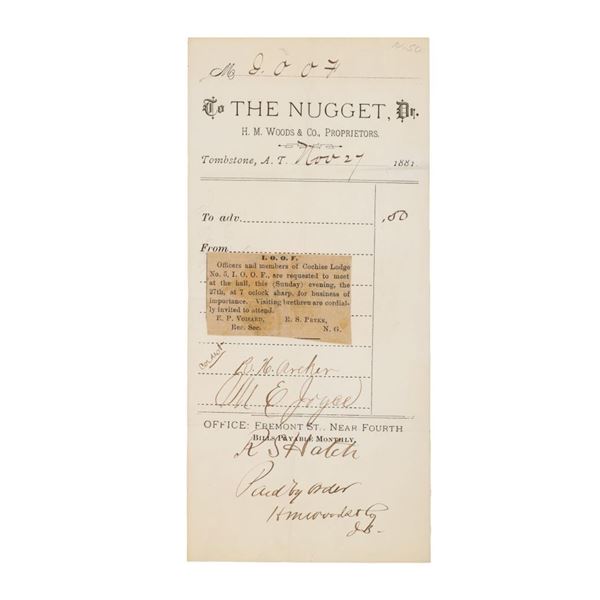 M I. O O F
To THE NUGGET, Dr.
H. M. WOODS & CO., PROPRIETORS.
Tombstone, A. T. Nov 27 1881
To adv. .50
From
I. O. O. F.
Officers and members of Cochise Lodge
No. 5, I. O. O. F., are requested to meet
at the hall, this (Sunday) evening, the
27th, at 7 oclock sharp, for business of
importance. Visiting brethren are cordial-
ly invited to attend.
F. P. VOISARD, R. S. PRYER,
Rec. Sec. N. G.
Correct
B. H. Archer
M E Joyce
OFFICE: FREMONT ST., NEAR FOURTH
BILLS PAYABLE MONTHLY.
R S Hatch
Paid by order
H M Woods & Co